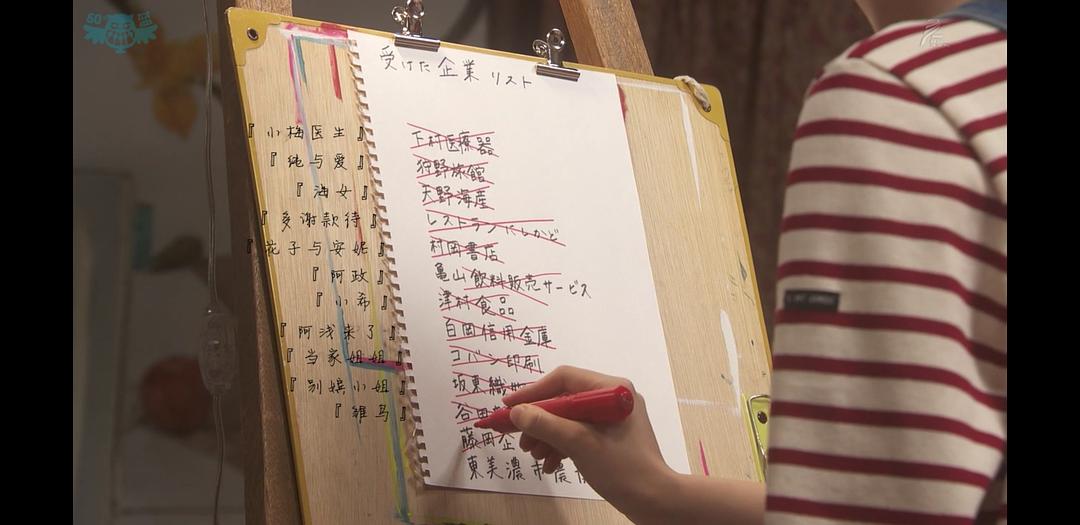 受けた企業リスト
『小梅医生』
下村医療器
『纯与爱』
狩野旅館
『海女』
天野海産
『多谢款待』
レストランにしかど
『花子与安妮』
村岡書店
『阿政』
亀山飲料販売サービス
『小希』
津村食品
『阿浅来了』
白岡信用金庫
『当家姐姐』
コバン印刷
『别嫔小姐』
坂東織
『雏鸟』
谷田
藤岡企
東美濃市農